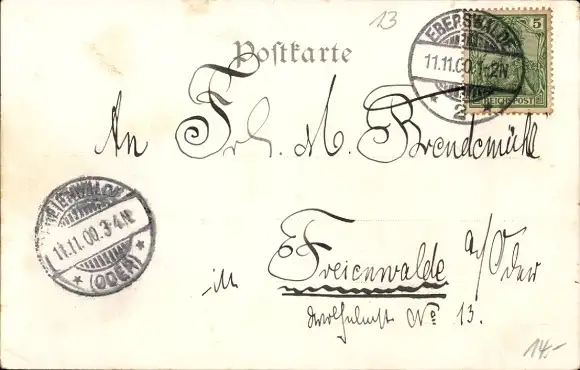 13
Postkarte
EBERSWALDE
11.11.00.1-2N
* 2 *
5
REICHSPOST
An Frl. M. Brendemühl
FREIENWALDE
11.11.00.3-4N
* (ODER) *
in Freienwalde a/Oder
No 13.
14.-